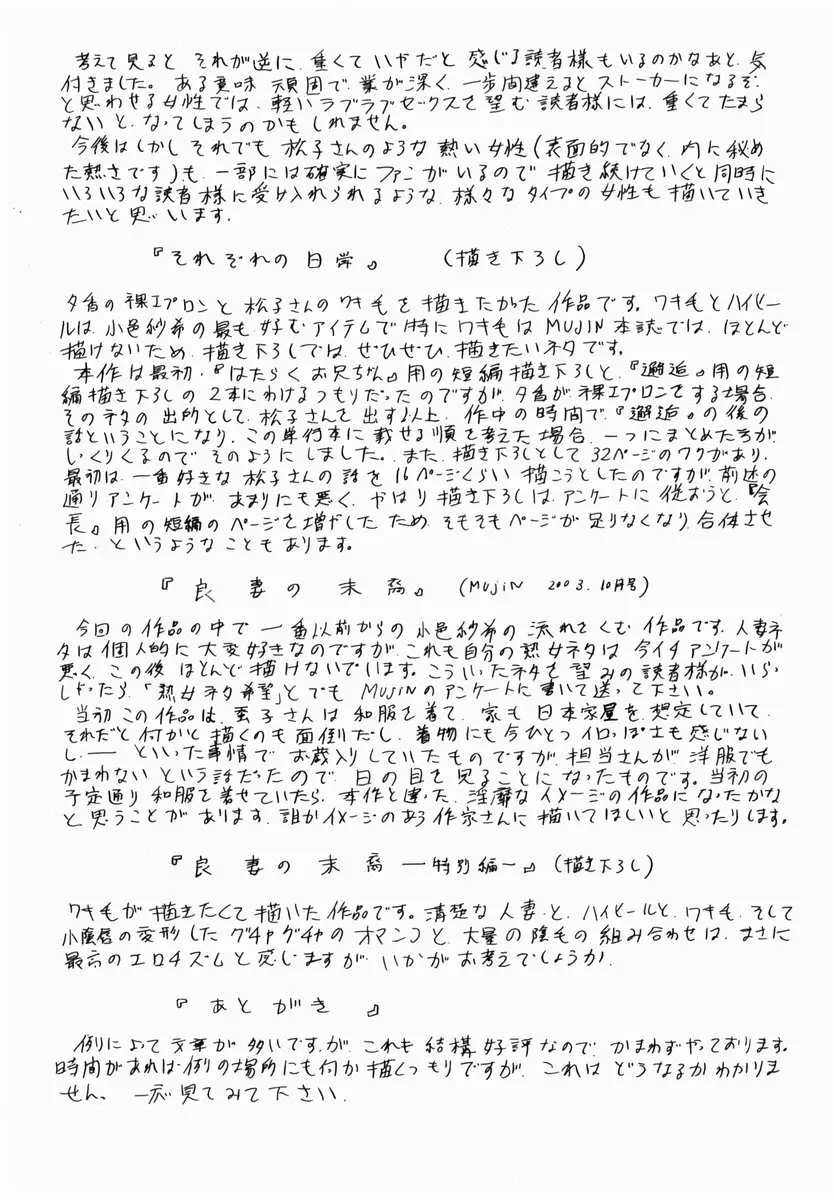 考えて見ると それが逆に、重くていやだと 感じる読者様もいるのかなあと、気
付きました。ある意味 頑固で、業が深く、一歩間違えるとストーカーになるぞ
と思わせる女性では、軽いラブラブセックスを望む読者様には、重くてたまら
ないと、なってしまうのかもしれません。
今後は、しかし それでも 松子さんのような熱い女性(表面的でなく、内に秘め
た熱さです)も、一部には確実にファンがいるので 描き続けていくと同時に
いろいろな読者様に受け入れられるような、様々なタイプの女性も描いていき
たいと思います。
『それぞれの日常』 (描き下ろし)
夕香の裸エプロンと 松子さんのワキ毛を描きたかった作品です。ワキ毛とハイヒー
ルは、小邑紗希の最も好むアイテムで 特にワキ毛は MUJIN本誌では、ほとんど
描けないため、描き下ろしでは、ぜひぜひ、描きたいネタです。
本作は最初、『はたらくお兄ちゃん』用の短編描き下ろしと、『邂逅』用の短
編描き下ろしの 2本にわけるつもりだったのですが、夕香が裸エプロンをする場合、
そのネタの出所として、松子さんを出す以上、作中の時間で、『邂逅』の後の
話ということになり、この単行本に載せる順を考えた場合、一つにまとめた方が
しっくりくるので そのようにしました。また、描き下ろしとして32ページのワクがあり、
最初は、一番好きな 松子さんの話を16ページくらい描こうとしたのですが、前述の
通りアンケートが、あまりにも悪く、やはり描き下ろしは、アンケートに従おうと、『会
長』用の短編のページを増やしたため、そもそもページが足りなくなり、合体させ
た、というようなこともあります。
『良妻の末裔』(MUJIN 2003.10月号)
今回の作品の中で一番以前からの小邑紗希の流れをくむ作品です。人妻ネ
タは個人的に大変好きなのですが、これも自分の熟女ネタは今イチアンケートが
悪く、この後ほとんど描けないでいます。こういったネタを望みの読者様が、いらっ
しゃったら、「熟女ネタ希望」とでも MUJINのアンケートに書いて送って下さい。
当初この作品は、蛍子さんは和服を着て、家も日本家屋を想定していて、
それだと何かと描くのも面倒だし、着物にも今ひとつイロっぽさも感じない
し、── といった事情で お蔵入りしていたものですが、担当さんが、洋服でも
かまわないという話だったので、日の目を見ることになったものです。当初の
予定通り 和服を着せていたら、本作と違った、淫靡なイメージの作品になったかな
と思うことがあります。誰かイメージのあう作家さんに描いてほしいと思ったりします。
『良妻の末裔 ―特別編―』(描き下ろし)
ワキ毛が描きたくて描いた作品です。清楚な人妻と、ハイヒールと、ワキ毛、そして
小陰唇の変形したグチャグチャのオマンコと、大量の陰毛の組み合わせは、まさに
最高のエロチズムと感じますが、いかがお考えでしょうか。
『あとがき』
例によって文章が多いですが、これも結構好評なので、かまわずやっております。
時間があれば例の場所にも何か描くつもりですが、これは どうなるかわかりま
せん。一応見てみて下さい。